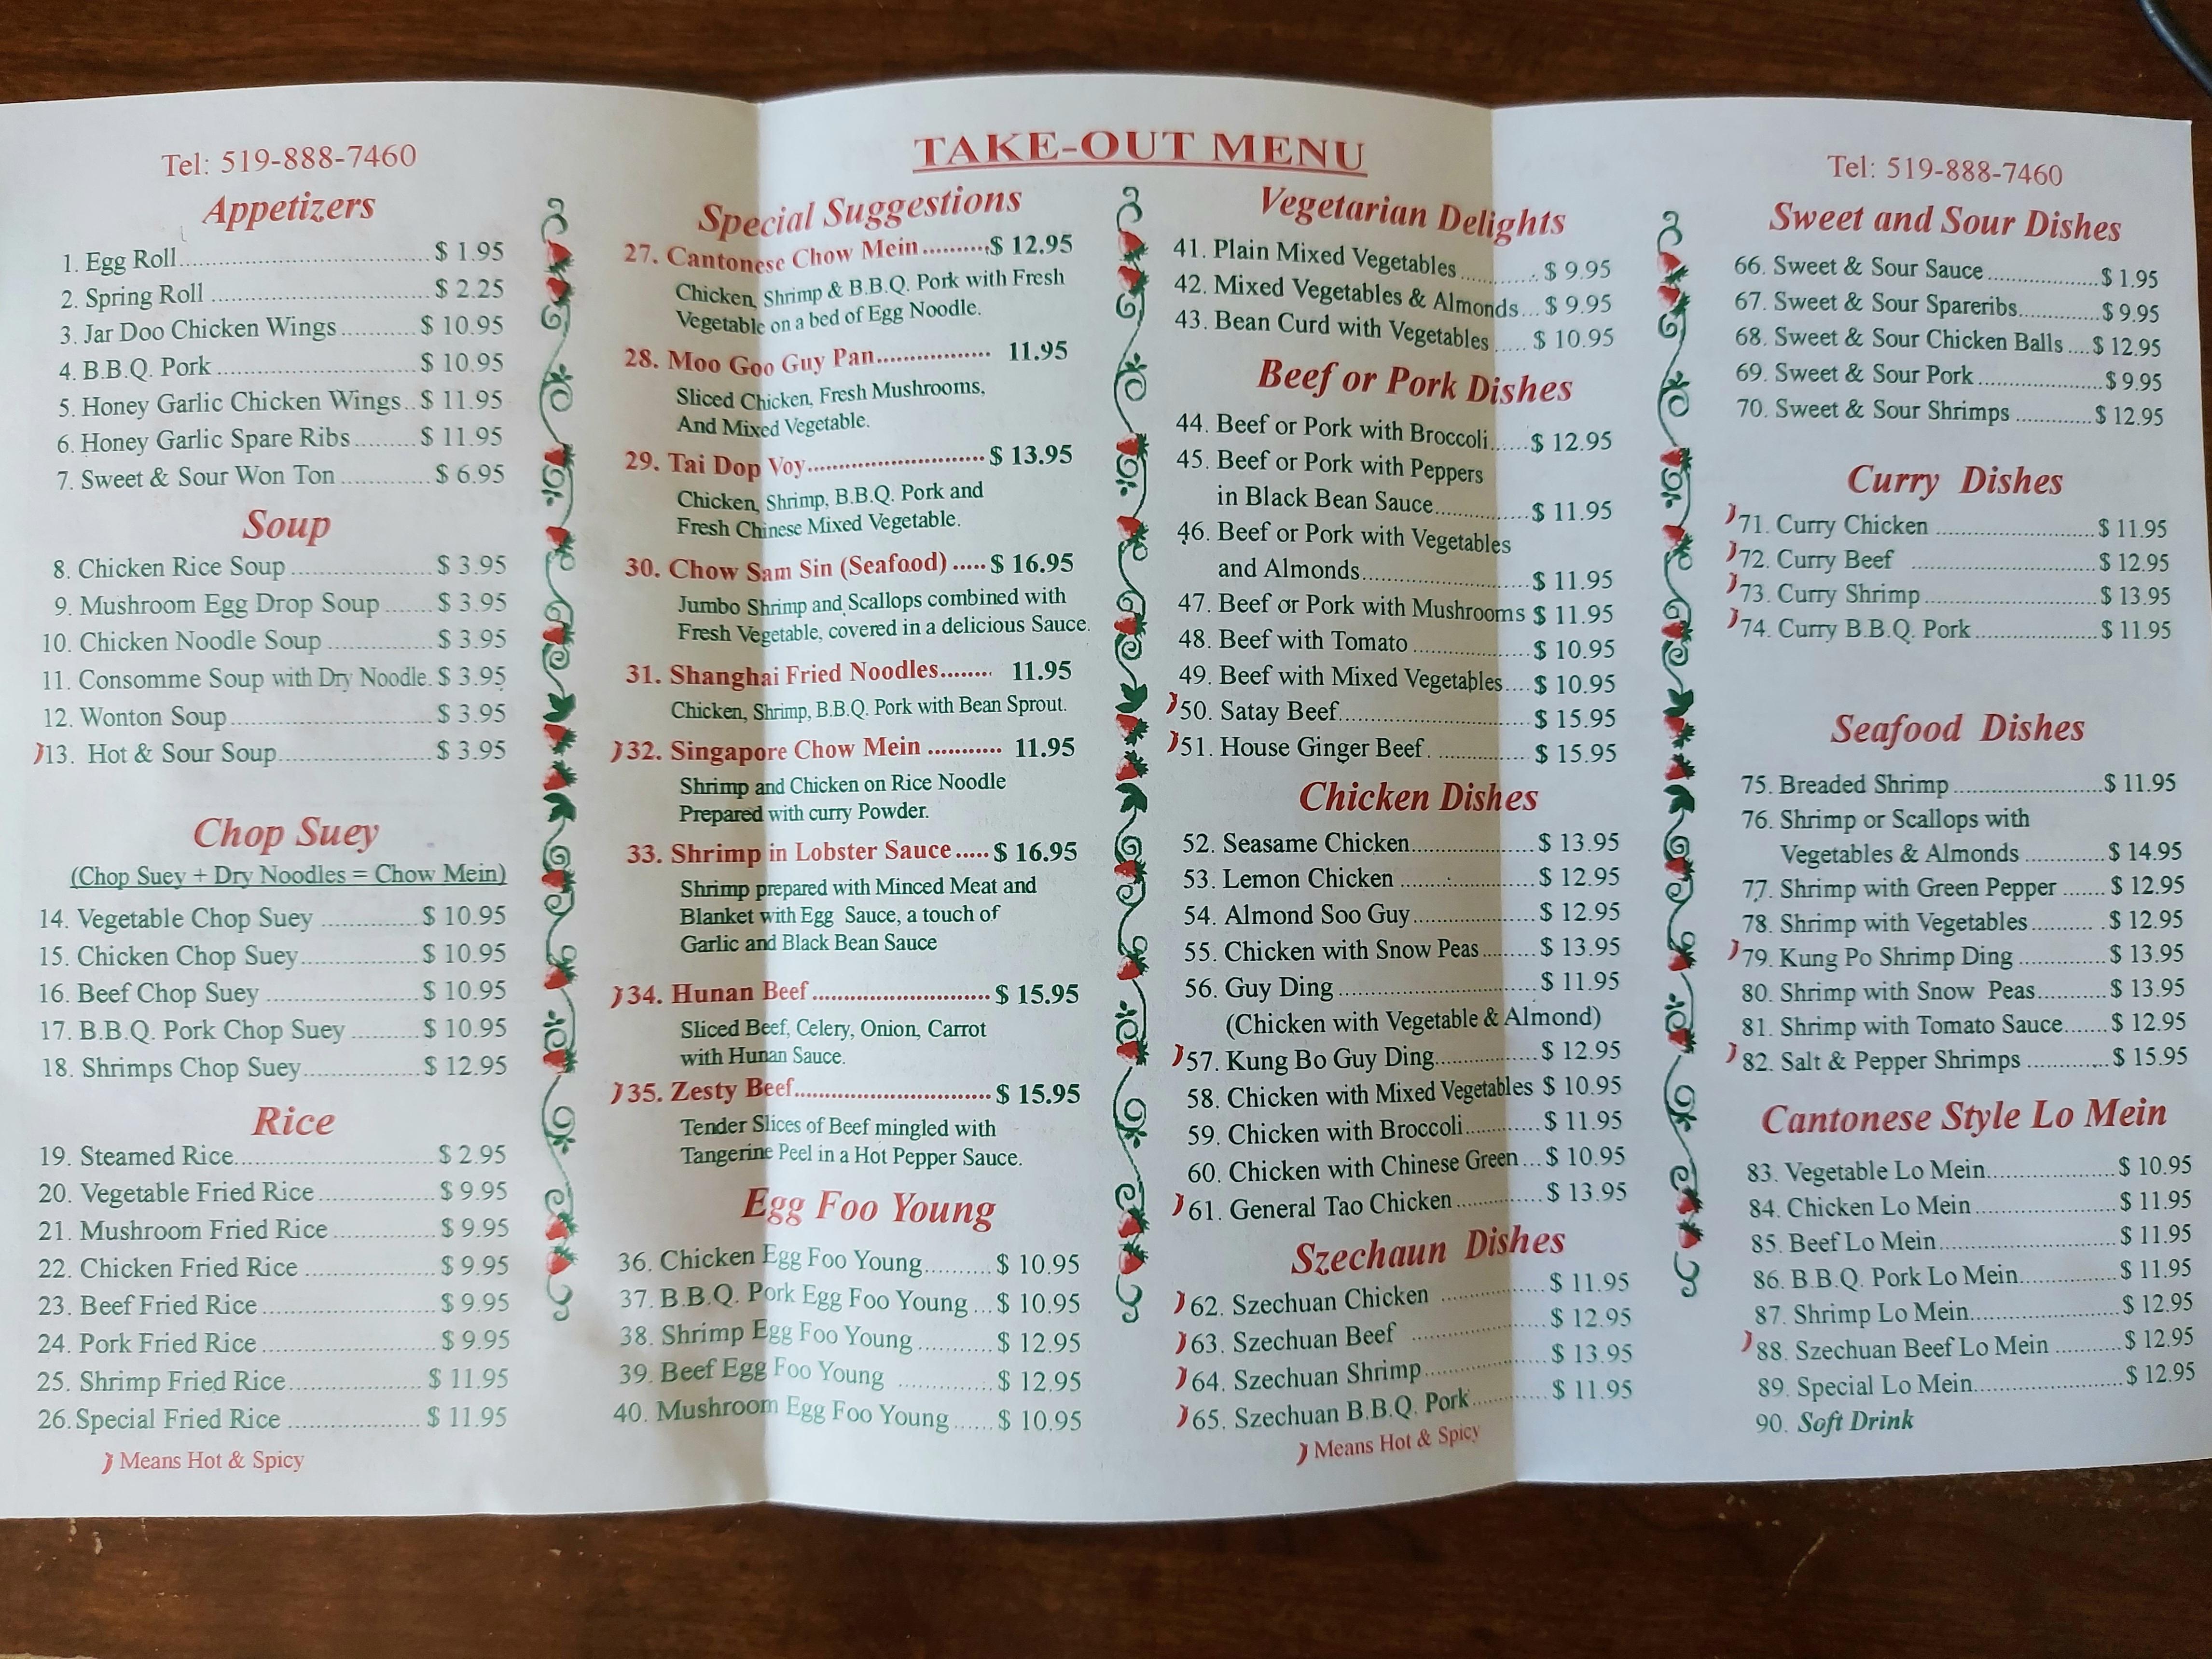 TAKE-OUT MENU
Tel: 519-888-7460
Appetizers
1. Egg Roll........ $ 1.95
2. Spring Roll ........ $ 2.25
3. Jar Doo Chicken Wings ........ $ 10.95
4. B.B.Q. Pork ........ $ 10.95
5. Honey Garlic Chicken Wings.. $ 11.95
6. Honey Garlic Spare Ribs ........ $ 11.95
7. Sweet & Sour Won Ton ........ $ 6.95
Soup
8. Chicken Rice Soup ........ $ 3.95
9. Mushroom Egg Drop Soup ....... $ 3.95
10. Chicken Noodle Soup ........ $ 3.95
11. Consomme Soup with Dry Noodle. $ 3.95
12. Wonton Soup ........ $ 3.95
13. Hot & Sour Soup ........ $ 3.95
Chop Suey
(Chop Suey + Dry Noodles = Chow Mein)
14. Vegetable Chop Suey ........ $ 10.95
15. Chicken Chop Suey ........ $ 10.95
16. Beef Chop Suey ........ $ 10.95
17. B.B.Q. Pork Chop Suey ........ $ 10.95
18. Shrimps Chop Suey ........ $ 12.95
Rice
19. Steamed Rice ........ $ 2.95
20. Vegetable Fried Rice ........ $ 9.95
21. Mushroom Fried Rice ........ $ 9.95
22. Chicken Fried Rice ........ $ 9.95
23. Beef Fried Rice ........ $ 9.95
24. Pork Fried Rice ........ $ 9.95
25. Shrimp Fried Rice ........ $ 11.95
26. Special Fried Rice ........ $ 11.95
Means Hot & Spicy
Special Suggestions
27. Cantonese Chow Mein ........ $ 12.95
Chicken, Shrimp & B.B.Q. Pork with Fresh
Vegetable on a bed of Egg Noodle.
28. Moo Goo Guy Pan ........ 11.95
Sliced Chicken, Fresh Mushrooms,
And Mixed Vegetable.
29. Tai Dop Voy ........ $ 13.95
Chicken, Shrimp, B.B.Q. Pork and
Fresh Chinese Mixed Vegetable.
30. Chow Sam Sin (Seafood) ..... $ 16.95
Jumbo Shrimp and Scallops combined with
Fresh Vegetable, covered in a delicious Sauce.
31. Shanghai Fried Noodles ........ 11.95
Chicken, Shrimp, B.B.Q. Pork with Bean Sprout.
32. Singapore Chow Mein ........ 11.95
Shrimp and Chicken on Rice Noodle
Prepared with curry Powder.
33. Shrimp in Lobster Sauce ..... $ 16.95
Shrimp prepared with Minced Meat and
Blanket with Egg Sauce, a touch of
Garlic and Black Bean Sauce
34. Hunan Beef ........ $ 15.95
Sliced Beef, Celery, Onion, Carrot
with Hunan Sauce.
35. Zesty Beef ........ $ 15.95
Tender Slices of Beef mingled with
Tangerine Peel in a Hot Pepper Sauce.
Egg Foo Young
36. Chicken Egg Foo Young ........ $ 10.95
37. B.B.Q. Pork Egg Foo Young ... $ 10.95
38. Shrimp Egg Foo Young ........ $ 12.95
39. Beef Egg Foo Young ........ $ 12.95
40. Mushroom Egg Foo Young ...... $ 10.95
Vegetarian Delights
41. Plain Mixed Vegetables ........ $ 9.95
42. Mixed Vegetables & Almonds... $ 9.95
43. Bean Curd with Vegetables ..... $ 10.95
Beef or Pork Dishes
44. Beef or Pork with Broccoli ...... $ 12.95
45. Beef or Pork with Peppers
in Black Bean Sauce ........ $ 11.95
46. Beef or Pork with Vegetables
and Almonds ........ $ 11.95
47. Beef or Pork with Mushrooms $ 11.95
48. Beef with Tomato ........ $ 10.95
49. Beef with Mixed Vegetables.... $ 10.95
50. Satay Beef ........ $ 15.95
51. House Ginger Beef ........ $ 15.95
Chicken Dishes
52. Seasame Chicken ........ $ 13.95
53. Lemon Chicken ........ $ 12.95
54. Almond Soo Guy ........ $ 12.95
55. Chicken with Snow Peas ........ $ 13.95
56. Guy Ding ........ $ 11.95
(Chicken with Vegetable & Almond)
57. Kung Bo Guy Ding ........ $ 12.95
58. Chicken with Mixed Vegetables $ 10.95
59. Chicken with Broccoli ........ $ 11.95
60. Chicken with Chinese Green ... $ 10.95
61. General Tao Chicken ........ $ 13.95
Szechaun Dishes
62. Szechuan Chicken ........ $ 11.95
63. Szechuan Beef ........ $ 12.95
64. Szechuan Shrimp ........ $ 13.95
65. Szechuan B.B.Q. Pork ........ $ 11.95
Means Hot & Spicy
Tel: 519-888-7460
Sweet and Sour Dishes
66. Sweet & Sour Sauce ........ $ 1.95
67. Sweet & Sour Spareribs ........ $ 9.95
68. Sweet & Sour Chicken Balls .... $ 12.95
69. Sweet & Sour Pork ........ $ 9.95
70. Sweet & Sour Shrimps ........ $ 12.95
Curry Dishes
71. Curry Chicken ........ $ 11.95
72. Curry Beef ........ $ 12.95
73. Curry Shrimp ........ $ 13.95
74. Curry B.B.Q. Pork ........ $ 11.95
Seafood Dishes
75. Breaded Shrimp ........ $ 11.95
76. Shrimp or Scallops with
Vegetables & Almonds ........ $ 14.95
77. Shrimp with Green Pepper ....... $ 12.95
78. Shrimp with Vegetables ........ $ 12.95
79. Kung Po Shrimp Ding ........ $ 13.95
80. Shrimp with Snow Peas ........ $ 13.95
81. Shrimp with Tomato Sauce ....... $ 12.95
82. Salt & Pepper Shrimps ........ $ 15.95
Cantonese Style Lo Mein
83. Vegetable Lo Mein ........ $ 10.95
84. Chicken Lo Mein ........ $ 11.95
85. Beef Lo Mein ........ $ 11.95
86. B.B.Q. Pork Lo Mein ........ $ 11.95
87. Shrimp Lo Mein ........ $ 12.95
88. Szechuan Beef Lo Mein ........ $ 12.95
89. Special Lo Mein ........ $ 12.95
90. Soft Drink